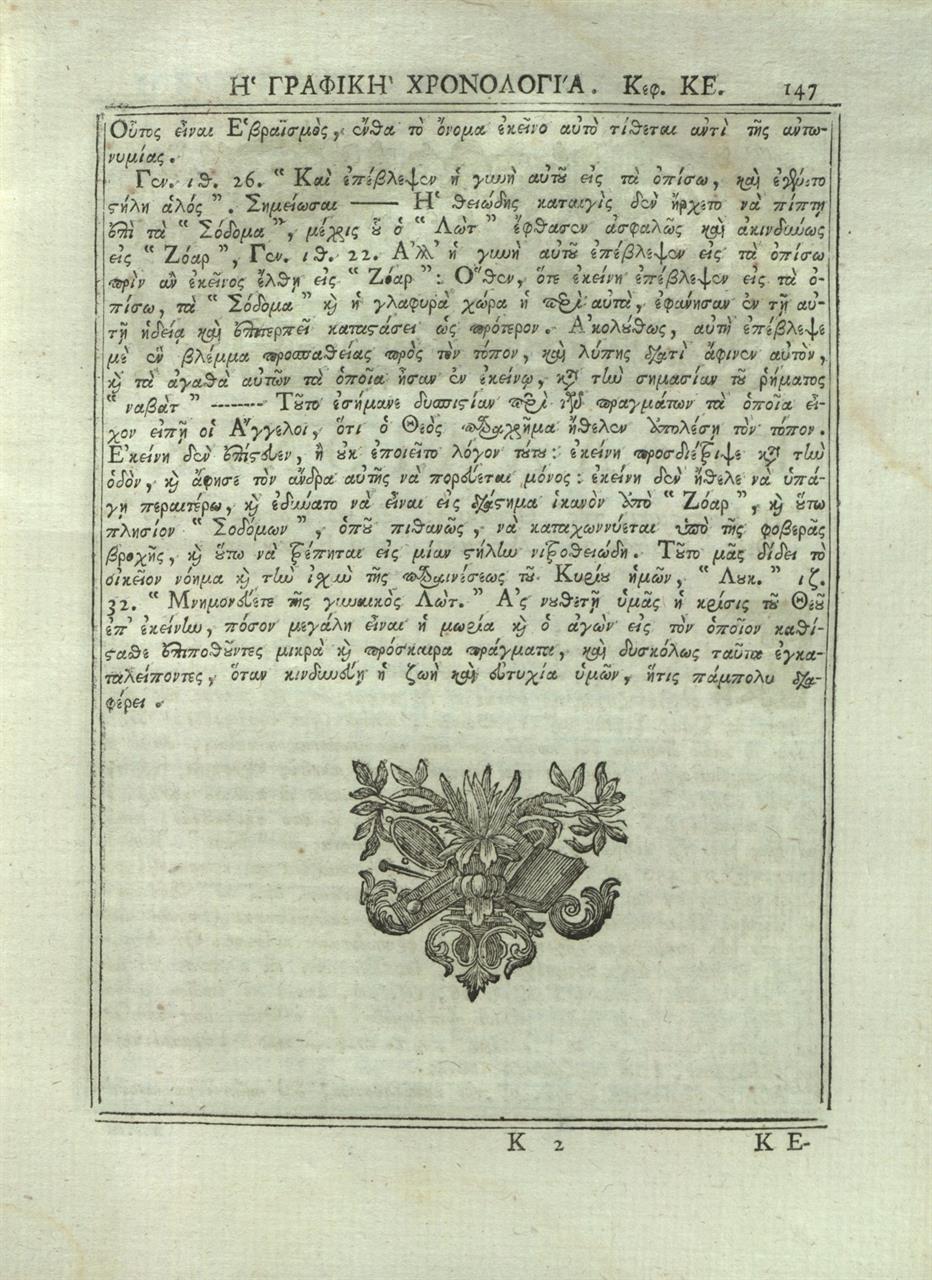 Ἡ ΓΡΑΦΙΚΗ ΧΡΟΝΟΛΟΓΙΑ. Κεφ. ΚΕ. 147
Οὗτος εἶναι Ἑβραϊσμὸς, ἔνθα τὸ ὄνομα ἐκεῖνο αὐτὸ τίθεται ἀντὶ τῆς ἀντω-
νυμίας.
Γεν. ιθ. 26. “ Καὶ ἐπέβλεψεν ἡ γυνὴ αὐτοῦ εἰς τὰ ὀπίσω, καὶ ἐγένετο
στήλη ἁλός ”. Σημείωσαι —— Ἡ θειώδης καταιγὶς δὲν ἤρχετο νὰ πίπτῃ
ἐπὶ τὰ “ Σόδομα ”, μέχρις οὗ ὁ “ Λὼτ ” ἔφθασεν ἀσφαλῶς καὶ ἀκινδύνως
εἰς “ Ζόαρ ”, Γεν. ιθ. 22. Ἀλλ' ἡ γυνὴ αὐτοῦ ἐπέβλεψεν εἰς τὰ ὀπίσω
πρὶν ἂν ἐκεῖνος ἔλθῃ εἰς “ Ζόαρ ”: Ὅθεν, ὅτε ἐκείνη ἐπέβλεψεν εἰς τὰ ὀ-
πίσω, τὰ “ Σόδομα ” καὶ ἡ γλαφυρὰ χώρα ἡ περὶ αὐτὰ, ἐφαίνησαν ἐν τῇ αὐ-
τῇ ἡδείᾳ καὶ ἐπιτερπεῖ καταστάσει ὡς πρότερον. Ἀκολούθως, αὐτὴ ἐπέβλεψε
μὲ ἓν βλέμμα προσπαθείας πρὸς τὸν τόπον, καὶ λύπης διατὶ ἄφινεν αὐτὸν,
καὶ τὰ ἀγαθὰ αὐτῶν τὰ ὁποῖα ἦσαν ἐν ἐκείνῳ, κατὰ τὴν σημασίαν τοῦ ῥήματος
“ ναβὰτ ” -------- Τοῦτο ἐσήμανε δυσπιστίαν περὶ τῶν πραγμάτων τὰ ὁποῖα εἶ-
χον εἰπῇ οἱ Ἄγγελοι, ὅτι ὁ Θεὸς παραχρῆμα ἤθελεν ἀπολέσῃ τὸν τόπον.
Ἐκείνη δὲν ἐπίστευεν, ἢ οὐκ ἐποιεῖτο λόγον τούτου: ἐκείνη προσδιέτριψε κατὰ τὴν
ὁδὸν, καὶ ἄφησε τὸν ἄνδρα αὐτῆς νὰ πορεύεται μόνος: ἐκείνη δὲν ἤθελε νὰ ὑπά-
γῃ περαιτέρω, καὶ ἐδύνατο νὰ εἶναι εἰς διάστημα ἱκανὸν ἀπὸ “ Ζόαρ ”, καὶ οὕτω
πλησίον “ Σοδόμων ”, ὁποῦ πιθανῶς, νὰ καταχωννύεται ὑπὸ τῆς φοβερᾶς
βροχῆς, καὶ οὕτω νὰ τρέπηται εἰς μίαν στήλην νιτροθειώδη. Τοῦτο μᾶς δίδει τὸ
οἰκεῖον νόημα καὶ τὴν ἰχὺν τῆς παραινέσεως τοῦ Κυρίου ἡμῶν, “ Λουκ. ” ιζ.
32. “ Μνημονεύετε τῆς γυναικὸς Λώτ. ” Ἂς νουθετῇ ὑμᾶς ἡ κρίσις τοῦ Θεοῦ
ἐπ' ἐκείνην, πόσον μεγάλη εἶναι ἡ μωρία καὶ ὁ ἀγὼν εἰς τὸν ὁποῖον καθί-
σταθε ἐπιποθοῦντες μικρὰ καὶ πρόσκαιρα πράγματα, καὶ δυσκόλως ταῦτα ἐγκα-
ταλείποντες, ὅταν κινδυνεύῃ ἡ ζωὴ καὶ εὐτυχία ὑμῶν, ἥτις πάμπολυ δια-
φέρει.
Κ 2 Κ Ε-